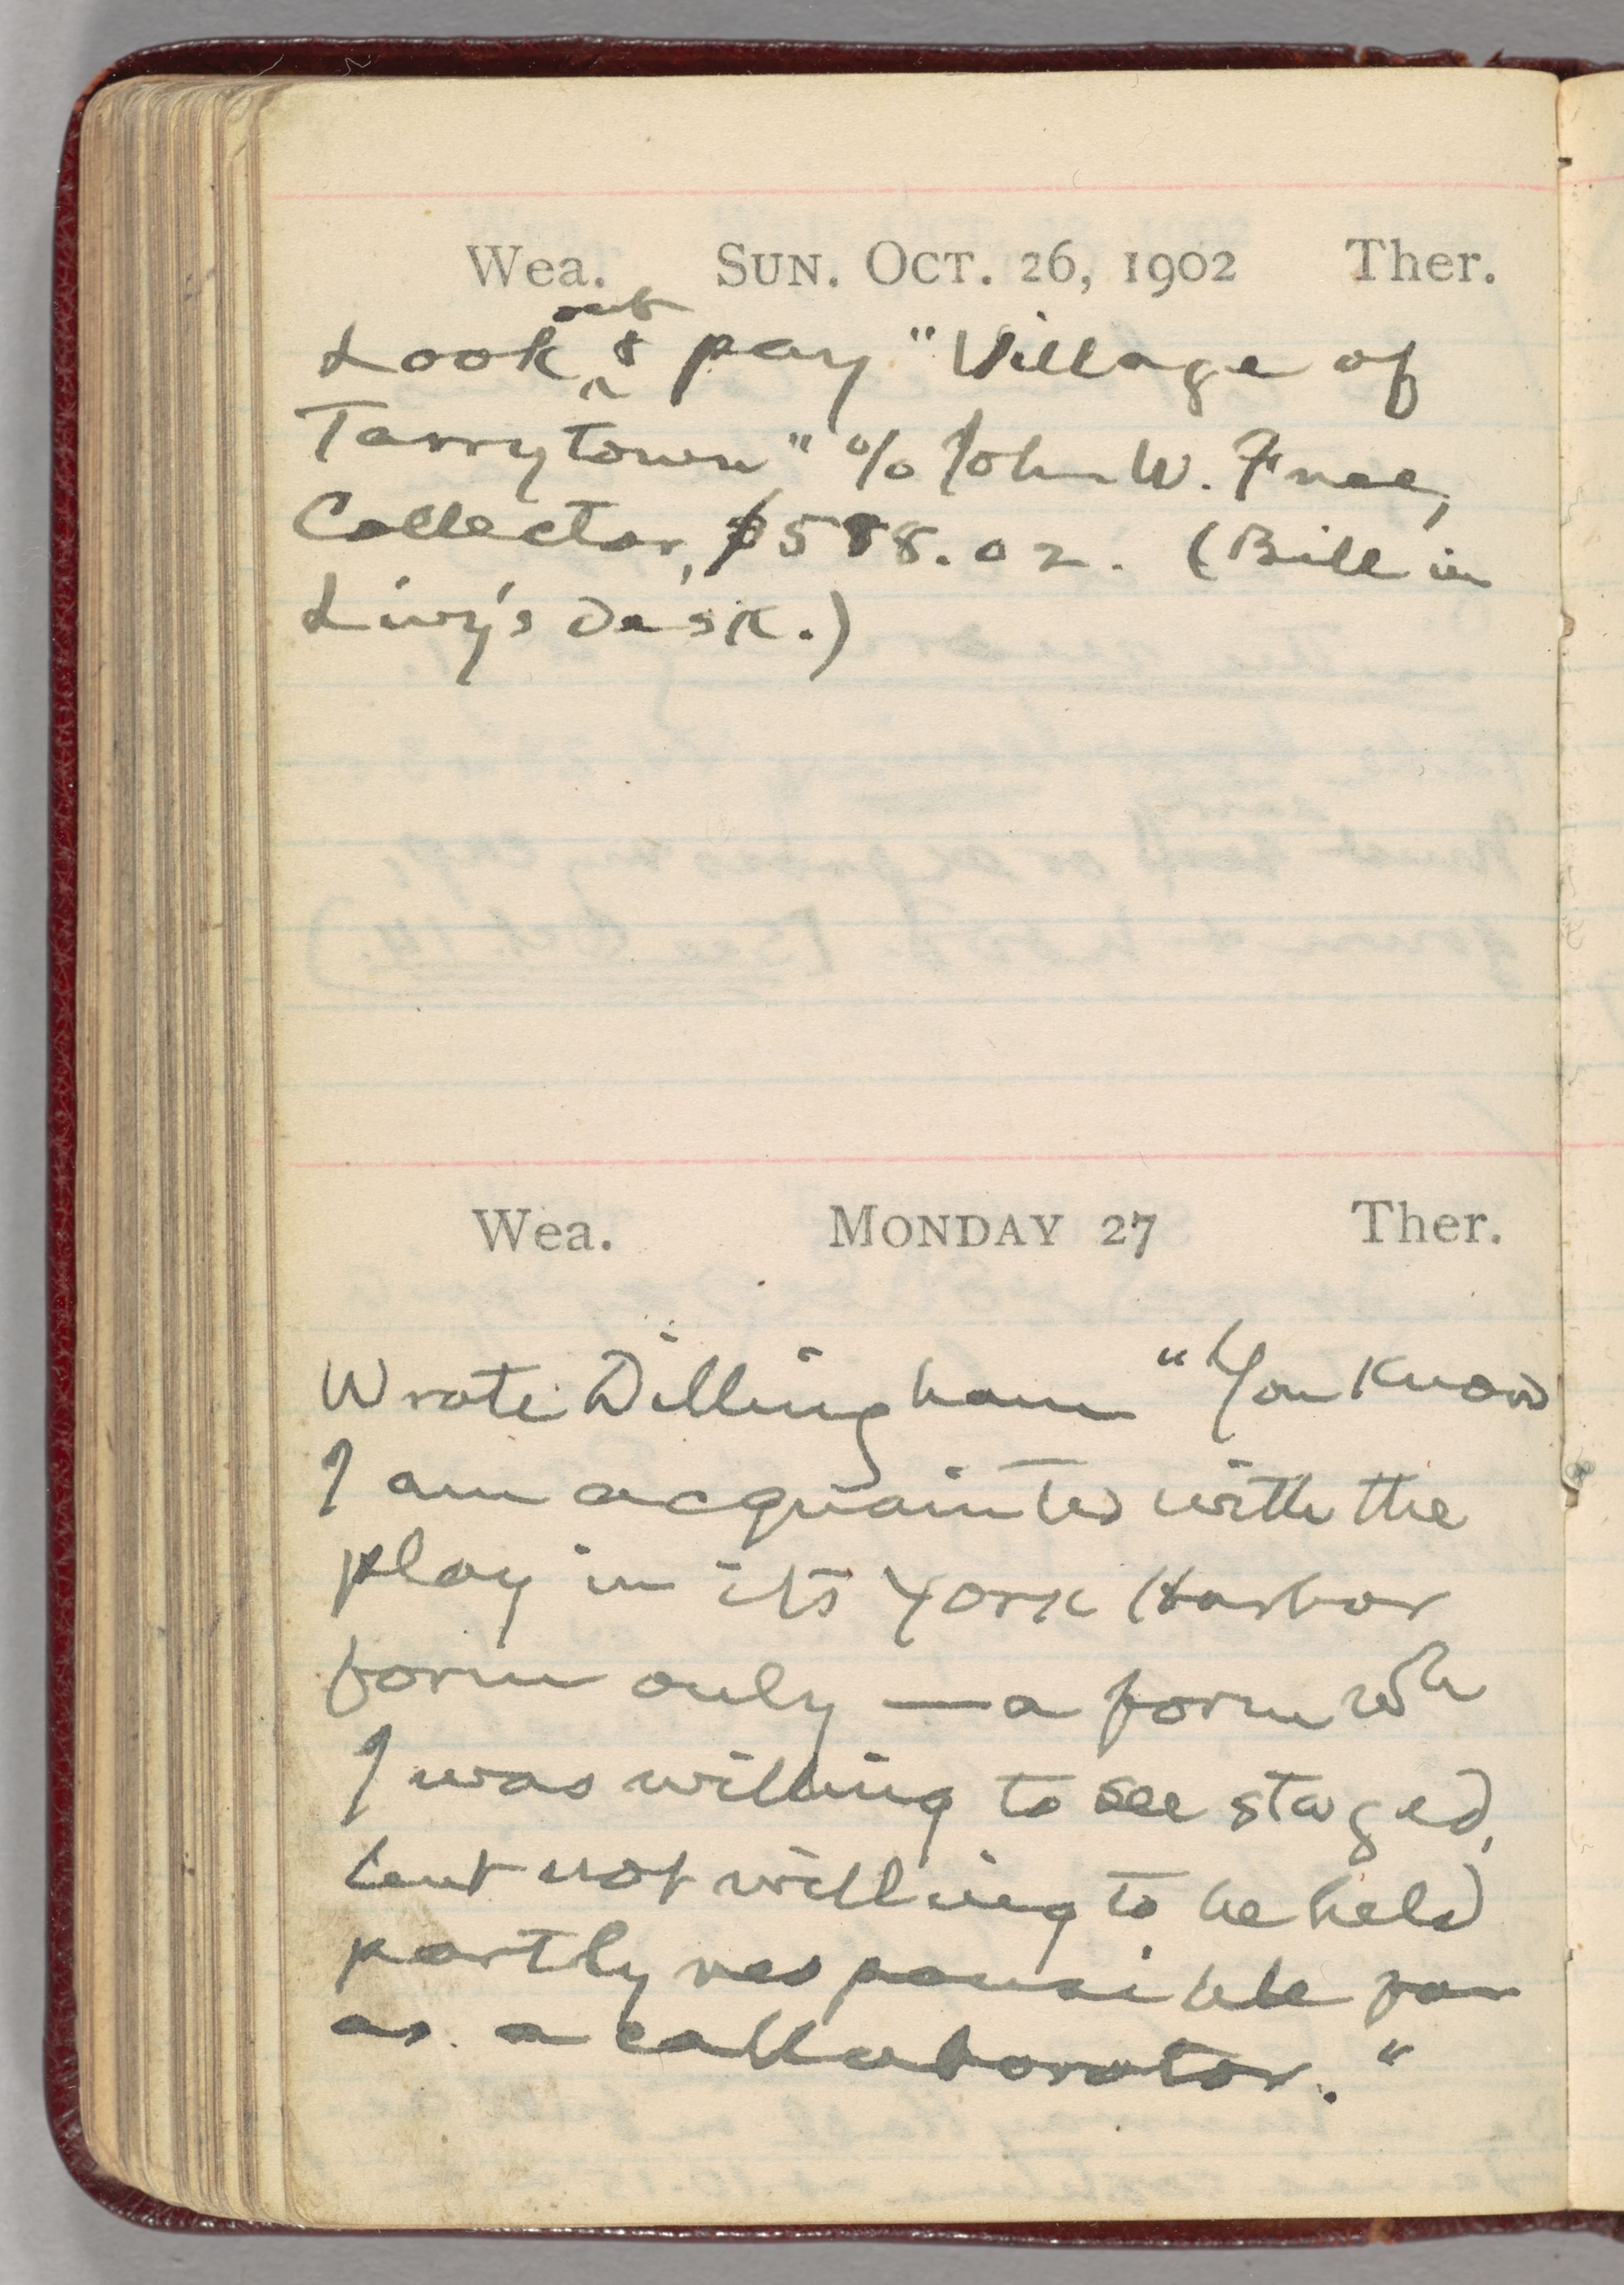 Wea. SUN. OCT. 26, 1902 Ther.
out
Look & pay "Village of
Tarrytown" % John W. Free,
Collector, $588.02. (Bill in
Livy's desk.)
Wea. MONDAY 27 Ther.
Wrote Dillingham "You know
I am acquainted with the
play in its York Harbor
form only — a form wh
I was willing to see staged,
but not willing to be held
partly responsible for
as a collaborator."